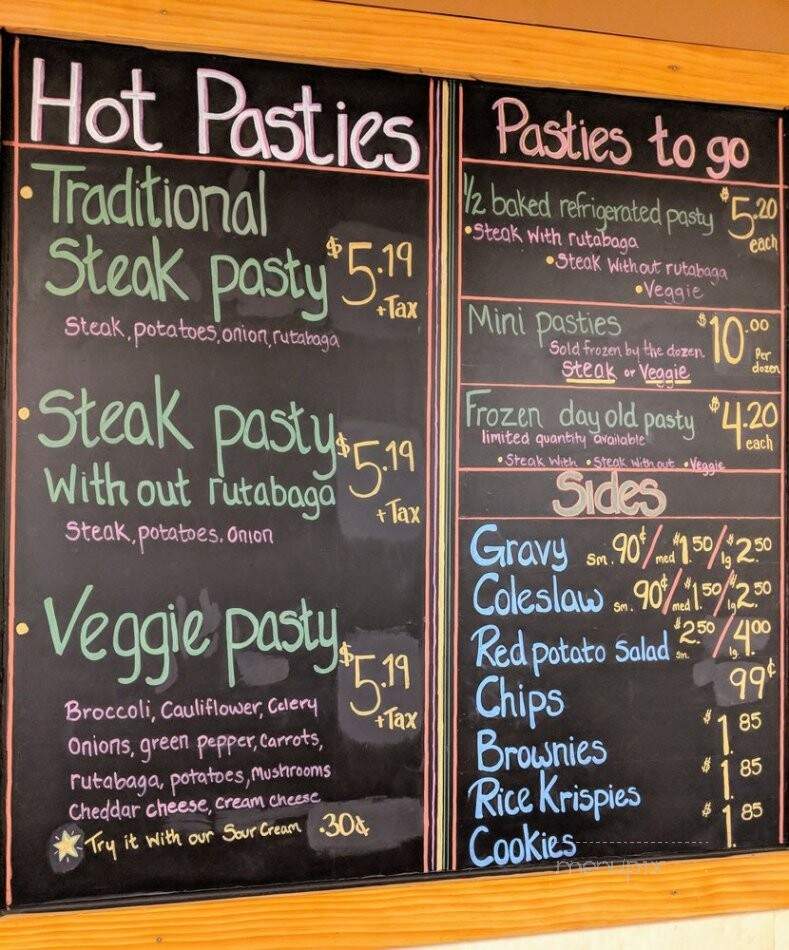 Hot Pasties
• Traditional
Steak pasty $5.19
+Tax
Steak, potatoes, onion, rutabaga
• Steak pasty $5.19
With out rutabaga
+Tax
Steak, potatoes. Onion
• Veggie pasty $5.19
+Tax
Broccoli, Cauliflower, Celery
Onions, green pepper, Carrots,
rutabaga, potatoes, Mushrooms
Cheddar cheese, cream cheese
Try it With our Sour Cream .30¢
Pasties to go
1/2 baked refrigerated pasty $5.20
each
• Steak With rutabaga
• Steak Without rutabaga
• Veggie
Mini pasties $10.00
Per
dozen
Sold frozen by the dozen
Steak or Veggie
Frozen day old pasty $4.20
each
limited quantity available
• Steak With • Steak With out • Veggie
Sides
Gravy sm. 90¢/med $1.50/lg $2.50
Coleslaw sm. 90¢/med $1.50/lg $2.50
Red potato Salad $2.50 sm./4.00 lg.
Chips 99¢
Brownies $1.85
Rice Krispies $1.85
Cookies $1.85